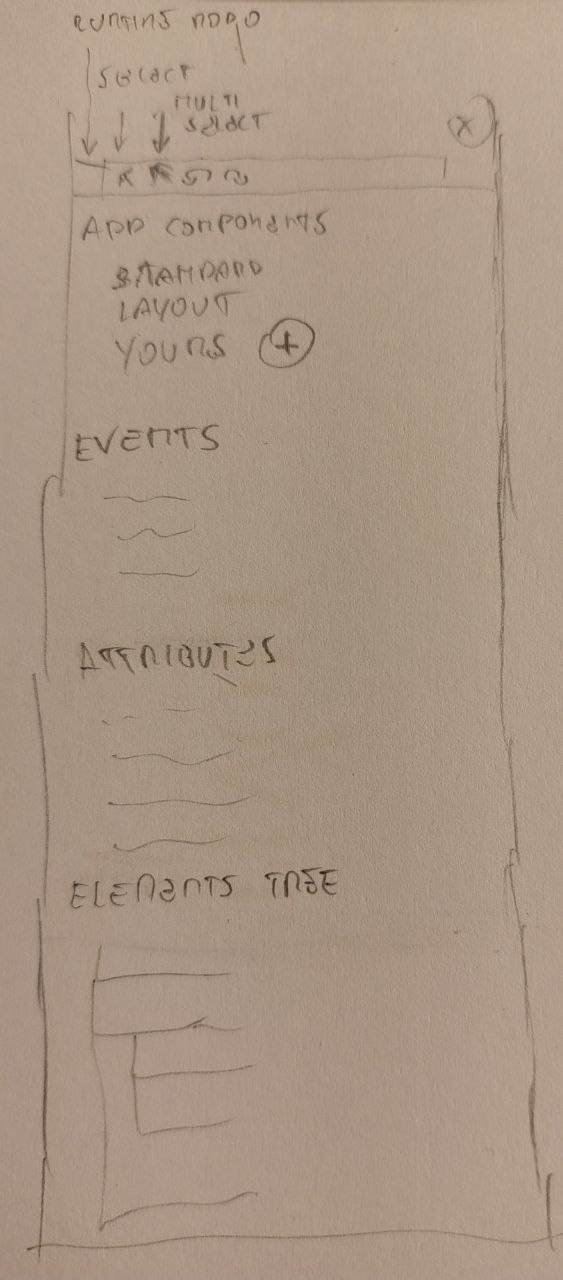 SELECT
MULTI
SELECT
X
APP COMPONENTS
STANDARD
LAYOUT
YOURS +
EVENTS
ATTRIBUTES
ELEMENTS TREE